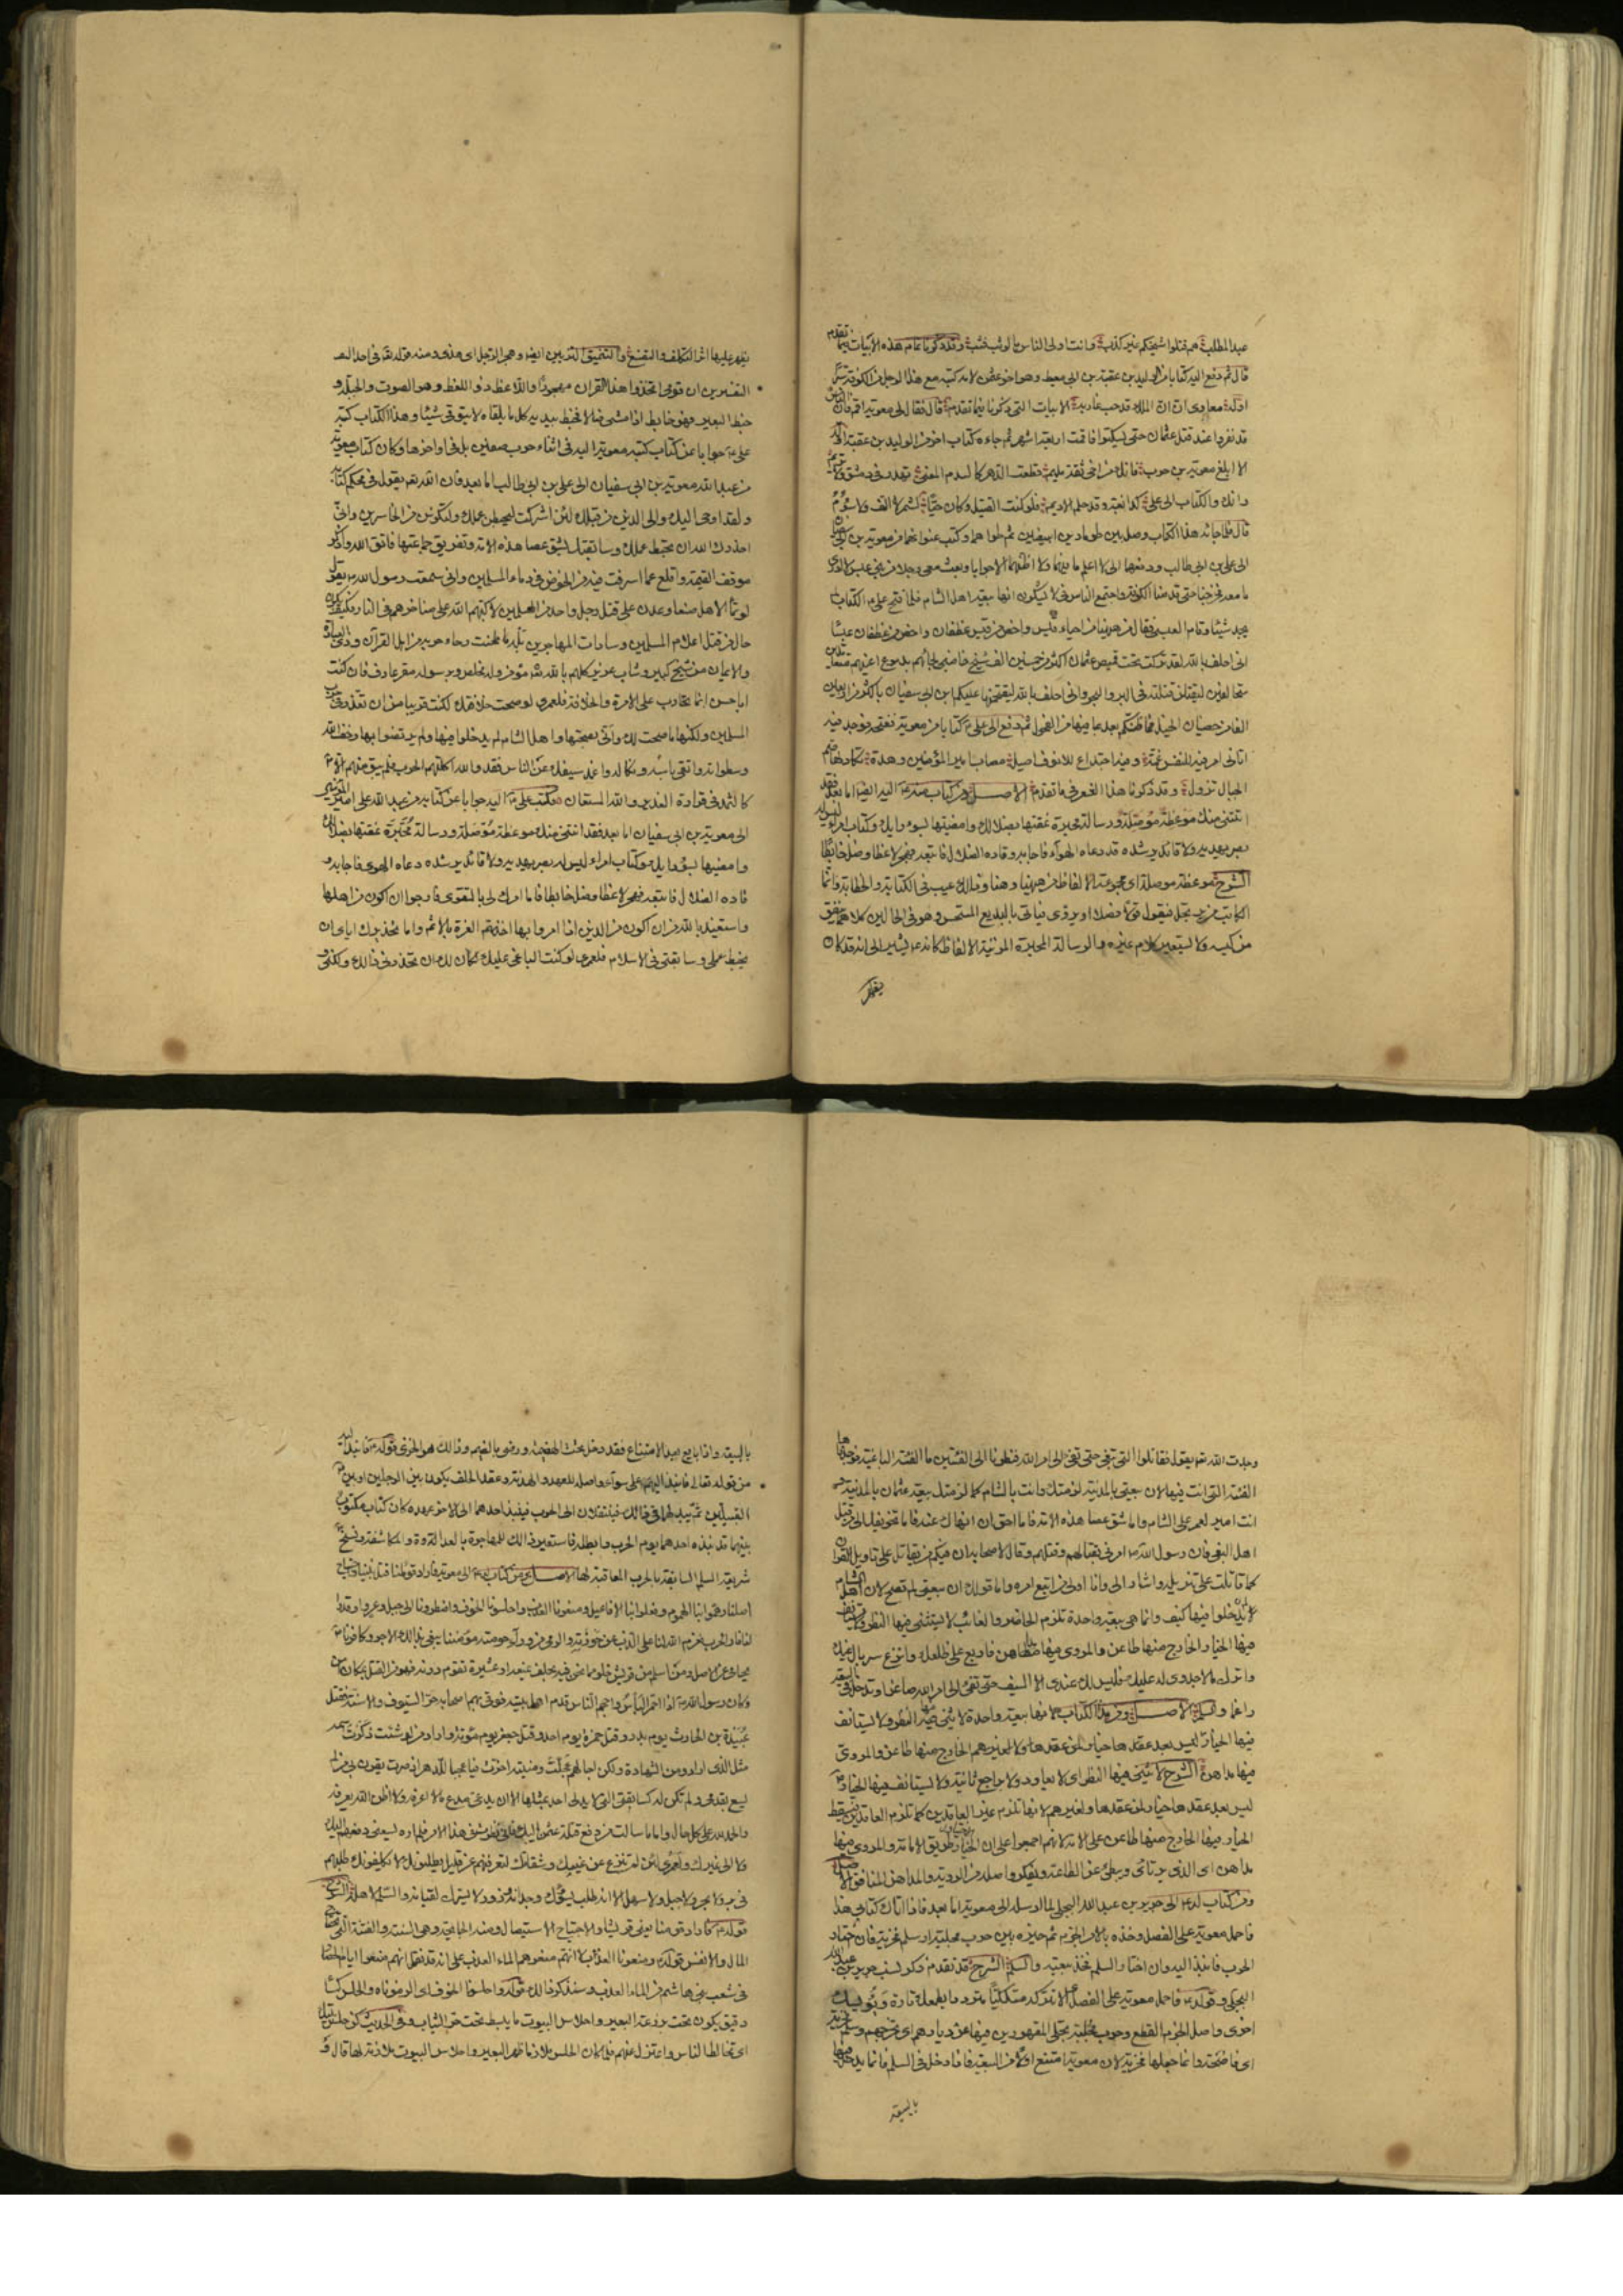 عبد المطلب هم قتلوا شيخكم غير كذب وانت اولى الناس بالوثب فثب وقد ذكرنا تمام هذه الابيات فيما تقدم
قال ثم دفع اليه كتابا من الوليد بن عقبة بن ابى معيط وهو اخو عثمن لامه كتبه مع هذا الرجل من الكوفة سرا
اوله معاوى ان الملك قد جب غاربه الابيات التى ذكرنا فيما تقدم قال فقال لى معوية اقم فان الناس
قد نفروا عند قتل عثمان حتى يسكنوا فاقمت اربعة اشهر ثم جاءه كتاب اخر من الوليد بن عقبة اوله
الا ابلغ معوية بن حرب فانك من اخى ثقة مليم قطعت الدهر كالسدم المعنى تهدر فى دمشق ولا تريم
وانك والكتاب الى على كدابغة وقد حلم الاديم فلو كنت القتيل وكان حيا لشمر لا الف ولا سؤم
قال فلما جائه هذا الكتاب وصل بين طومارين ابيضين ثم طواهما وكتب عنوانهما من معوية بن ابى سفيان
الى على بن ابى طالب ودفعهما الى لا اعلم ما فيهما ولا اظنهما الا جوابا وبعث معى رجلا من بنى عبس لا ادرى
ما معه فخرجنا حتى قدمنا الكوفة واجتمع الناس فى لا يشكون انها بيعة اهل الشام فلما فتح على ع الكتاب لم
يجد شيئا وقام العبسى فقال من هيهنا من احياء قيس واخص من قيس غطفان واخص من غطفان عبسا
انى احلف بالله لقد تركت تحت قميص عثمان اكثر من خمسين الف شيخ خاضبى لحاهم بدموع اعينهم متعاقدين
متحالفين ليقتلن قتلته فى البر والبحر وانى احلف بالله ليقتحمنها عليكم ابن ابى سفيان باكثر من اربعين
الفا من خصيان الخيل فما ظنكم بعد بما فيها من الفحول ثم دفع الى على ع كتابا من معوية ففتحه فوجد فيه
اتانى امر فيه للنفس غمة وفيه اجتداع للانوف اصيل مصاب امير المؤمنين وهدة تكاد لها صم
الجبال تزول وقد ذكرنا هذا الشعر فى ما تقدم الاصل ومن كتاب منه ع اليه ايضا اما بعد فقد
اتتنى منك موعظة موصلة ورسالة محبرة نمقتها بضلالك وامضيتها بسوء رايك وكتاب امرئ ليس له
بصر يهديه ولا قائد يرشده قد دعاه الهوآء فاجابه وقاده الضلال فاتبعه فهجر لاغطا وضل خابطا
الشرح موعظة موصلة اى مجموعة الالفاظ من هيهنا وهنا وذلك عيب فى الكتابة والخطابة وانما
الكاتب من يرتجل فيقول قولا فصلا او يروى فياتى بالبديع المستحسن وهو فى الحالين كلاهما ينفق
من كيسه ولا يستعير كلام غيره والرسالة المحبرة المزينة الالفاظ كانه ع يشير الى انه قد كان
يظهر
يظهر عليها اثر التكلف والتصنع والتنميق التزيين ايضا وهجر الرجل اى هذى ومنه قوله تعالى فى احد
التفسيرين ان قومى اتخذوا هذا القران مهجورا واللاغط ذو اللغط وهو الصوت والجلبة و
خبط البعير فهو خابط اذا مشى ضالا فخبط بيديه كل ما يلقاه لا يتوقى شيئا وهذا الكتاب كتبه
على ع جوابا عن كتاب كتبه معوية اليه فى اثناء حرب صفين بل فى اواخرها وكان كتاب معوية
من عبد الله معوية بن ابى سفيان الى على بن ابى طالب اما بعد فان الله تعم يقول فى محكم كتابه
ولقد اوحى اليك والى الذين من قبلك لئن اشركت ليحبطن عملك ولتكونن من الخاسرين وانى
احذرك الله ان تحبط عملك وسابقتك بشق عصا هذه الامة وتفريق جماعتها فاتق الله واذكر
موقف القيمة واقلع عما اسرفت فيه من الخوض فى دماء المسلمين وانى سمعت رسول الله ص يقول
لو تمالا اهل صنعا وعدن على قتل رجل واحد من المسلمين لاكبهم الله على مناخرهم فى النار فكيف يكون
حال من قتل اعلام المسلمين وسادات المهاجرين بله ما طحنت رحاء حربه من اهل القرآن وذوى العبادة
والايمان من شيخ كبير وشاب غرير كلهم بالله تعم مؤمن وله مخلص وبرسوله مقر عارف فان كنت
ابا حسن انما تحارب على الامرة والخلافة فلعمرى لو صحت خلافتك لكنت قريبا من ان تعذر فى حرب
المسلمين ولكنها ما صحت لك وانى بصحتها واهل الشام لم يدخلوا فيها ولم يرتضوا بها وخف الله
وسطواته واتق باسه ونكاله واغمد سيفك عن الناس فقد والله اكلتهم الحرب فلم يبق منهم الا
كالثمد فى قرارة الغدير والله المستعان فكتب على ع اليه جوابا عن كتابه من عبد الله على امير المؤمنين
الى معوية بن ابى سفيان اما بعد فقد اتتنى منك موعظة موصلة ورسالة محبرة نمقتها بضلالك
وامضيتها بسوء رايك وكتاب امرء ليس له بصر يهديه ولا قائد يرشده دعاه الهوى فاجابه و
قاده الضلال فاتبعه فهجر لاغطا وضل خابطا فاما امرك لى بالتقوى فارجوا ان اكون من اهلها
واستعيذ بالله من ان اكون من الذين اذا امروا بها اخذتهم العزة بالاثم واما تحذيرك اياى ان
يحبط عملى وسابقتى فى الاسلام فلعمرى لو كنت الباغى عليك لكان لك ان تحذرنى ذالك ولكنى
وجدت الله تعم يقول فقاتلوا التى تبغى حتى تفئ الى امر الله فنظرنا الى الفئتين اما الفئة الباغية فوجدناها
الفئة التى انت فيها لان بيعتى بالمدينة لزمتك وانت بالشام كما لزمتك بيعة عثمان بالمدينة و
انت امير لعمر على الشام واما شق عصا هذه الامة فانا احق ان انهاك عنه فاما تخويفك لى من قتل
اهل البغى فان رسول الله ص امرنى بقتالهم وقتلهم وقال لاصحابه ان فيكم من يقاتل على تاويل القران
كما قاتلت على تنزيله واشار الى وانا اولى من اتبع امره واما قولك ان بيعتى لم تصح لان اهل الشام
لم يدخلوا فيها كيف وانما هى بيعة واحدة تلزم الحاضر والغائب لا يستثنى فيها النظر ولا يستانف
فيها الخيار والخارج منها طاعن والمروى فيها مداهن فاربع على ظلعك وانزع سربال غيك
واترك ما لا جدوى له عليك فليس لك عندى الا السيف حتى تفئ الى امر الله صاغرا وتدخل فى البيعة
راغما والسلم الاصل ومن هذا الكتاب لانها بيعة واحدة لا يثنى فيها النظر ولا يستانف
فيها الخيار ليس بعد عقدها خيار لمن عقدها ولا لغيرهم الخارج منها طاعن والمروى
فيها مداهن الشرح لا يثنى فيها النظر اى لا يعاود ولا يراجع ثانية ولا يستانف فيها الخيار
ليس بعد عقدها خيار لمن عقدها ولغيرهم لانها تلزم غير العاقدين كما تلزم العاقدين فيسقط
الخيار فيها الخارج منها طاعن على الامة لانهم اجمعوا على ان الاختيار طريق الامامة والمروى فيها
مداهن اى الذى يرتائى ويبطئ عن الطاعة ويفكر واصله من الروية والمداهن المنافق الاصل
ومن كتاب له ع الى جرير بن عبد الله البجلى لما ارسله الى معوية اما بعد فاذا اتاك كتابى هذا
فاحمل معوية على الفصل وخذه بالامر الجزم ثم خيره بين حرب مجلية او سلم مخزية فان اختار
الحرب فانبذ اليه وان اختار السلم فخذ بيعته والسلم الشرح قد تقدم ذكر نسب جرير بن عبد الله
البجلى وقوله ع فاحمل معوية على الفصل اى لا تتركه متلكئا مترددا يطمعك تارة ويؤيسك
اخرى واصل الجزم القطع وحرب مجلية تجلى المقهورين فيها عن ديارهم اى تخرجهم وسلم مخزية
اى فاضحة وانما جعلها مخزية لان معوية امتنع اولا من البيعة فاذا دخل فى السلم فانما يدخل فيها
بالبيعة
بالبيعة واذا بايع بعد الامتناع فقد دخل تحت الهضم ورضى بالضيم وذالك هو الخزى قوله ع فانبذ اليه
من قوله تعالى فانبذ اليهم على سواء واصله العهد والهدنة وعقد الحلف يكون بين الرجلين او بين
القبيلتين ثم يبدو لهما فى ذالك فينتقلان الى الحرب فينبذ احدهما الى الاخر عهده كان كتاب مكتوب
بينهما قد نبذه احدهما يوم الحرب وابطله فاستعير ذالك للمجاهرة بالعداوة والمكاشفة ونسخ
شريعة السلم السابقة بالحرب المعاقبة لها الاصل ومن كتاب له ع الى معوية فاراد قومنا قتل نبينا واجتياح
اصلنا وهموا بنا الهموم وفعلوا بنا الافاعيل ومنعونا العذب واحلسونا الخوف واضطرونا الى جبل وعر واوقدوا
لنا نار الحرب فعزم الله لنا على الذب عن حوزته والرمى من ورآء حومته مؤمننا يبغى بذالك الاجر وكافرنا
يحامى عن الاصل ومن اسلم من قريش خلو مما نحن فيه بحلف يمنعه او عشيرة تقوم دونه فهو من القتل بمكان امن
وكان رسول الله ص اذا احمر الباس واحجم الناس قدم اهل بيته فوقى بهم اصحابه حر السيوف والاسنة فقتل
عبيدة بن الحارث يوم بدر وقتل حمزة يوم احد وقتل جعفر يوم مؤتة واراد من لو شئت ذكرت اسمه
مثل الذى ارادوا من الشهادة ولكن اجالهم عجلت ومنيته اخرت فيا عجبا للدهر اذ صرت يقرن بى من لم
يسع بقدمى ولم تكن له كسابقتى التى لا يدلى احد بمثلها الا ان يدعى مدع ما لا اعرفه ولا اظن الله يعرفه
والحمد لله على كل حال واما ما سالت من دفع قتلة عثمن اليك فانى نظرت فى هذا الامر فلم اره يسعنى دفعهم اليك
ولا الى غيرك ولعمرى لئن لم تنزع عن غيك وشقاقك لتعرفنهم عن قليل يطلبونك لا يكلفونك طلبهم
فى بر ولا بحر ولا جبل ولا سهل الا انه طلب يسؤك وجدانه وزور لا يسرك لقيانه والسلم لاهله الشرح
قوله ع فاراد قومنا يعنى قريشا والاجتياح الاستيصال ومنه الجائحة وهى السنة والفتنة التى تجتاح
المال والانفس قوله ومنعونا العذب اى منعوهم الماء العذب على انه قد نقل انهم منعوا ايام الحصار
فى شعب بنى هاشم من الماء العذب وسنذكر ذالك قوله واحلسونا الخوف اى الزموناه والحلس كساء
دقيق يكون تحت برذعة البعير واحلاس البيوت ما يبسط تحت حر الثياب وفى الحديث كن حلس بيتك
اى تخالط الناس واعتزل عنهم فلما كان الحلس ملازما ظهر البعير واحلاس البيوت ملازمة لها قال و